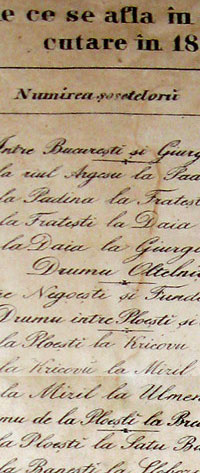 le ce se afla în
cutare în 18
Numirea șoselelorü
Între București și Giurg
la riul Argesu la Pad
la Padina la Fratest
la Fratești la Daia
la Daia la Giurge
Drumu Oltelniț
re Nigoești și Funde
Drumu între Ploești și
la Ploești la Kricovu
la Kricovu la Mizil
la Mizil la Ulmen
mu de la Ploești la Bra
la Ploești la Satu Ba
la Banești la